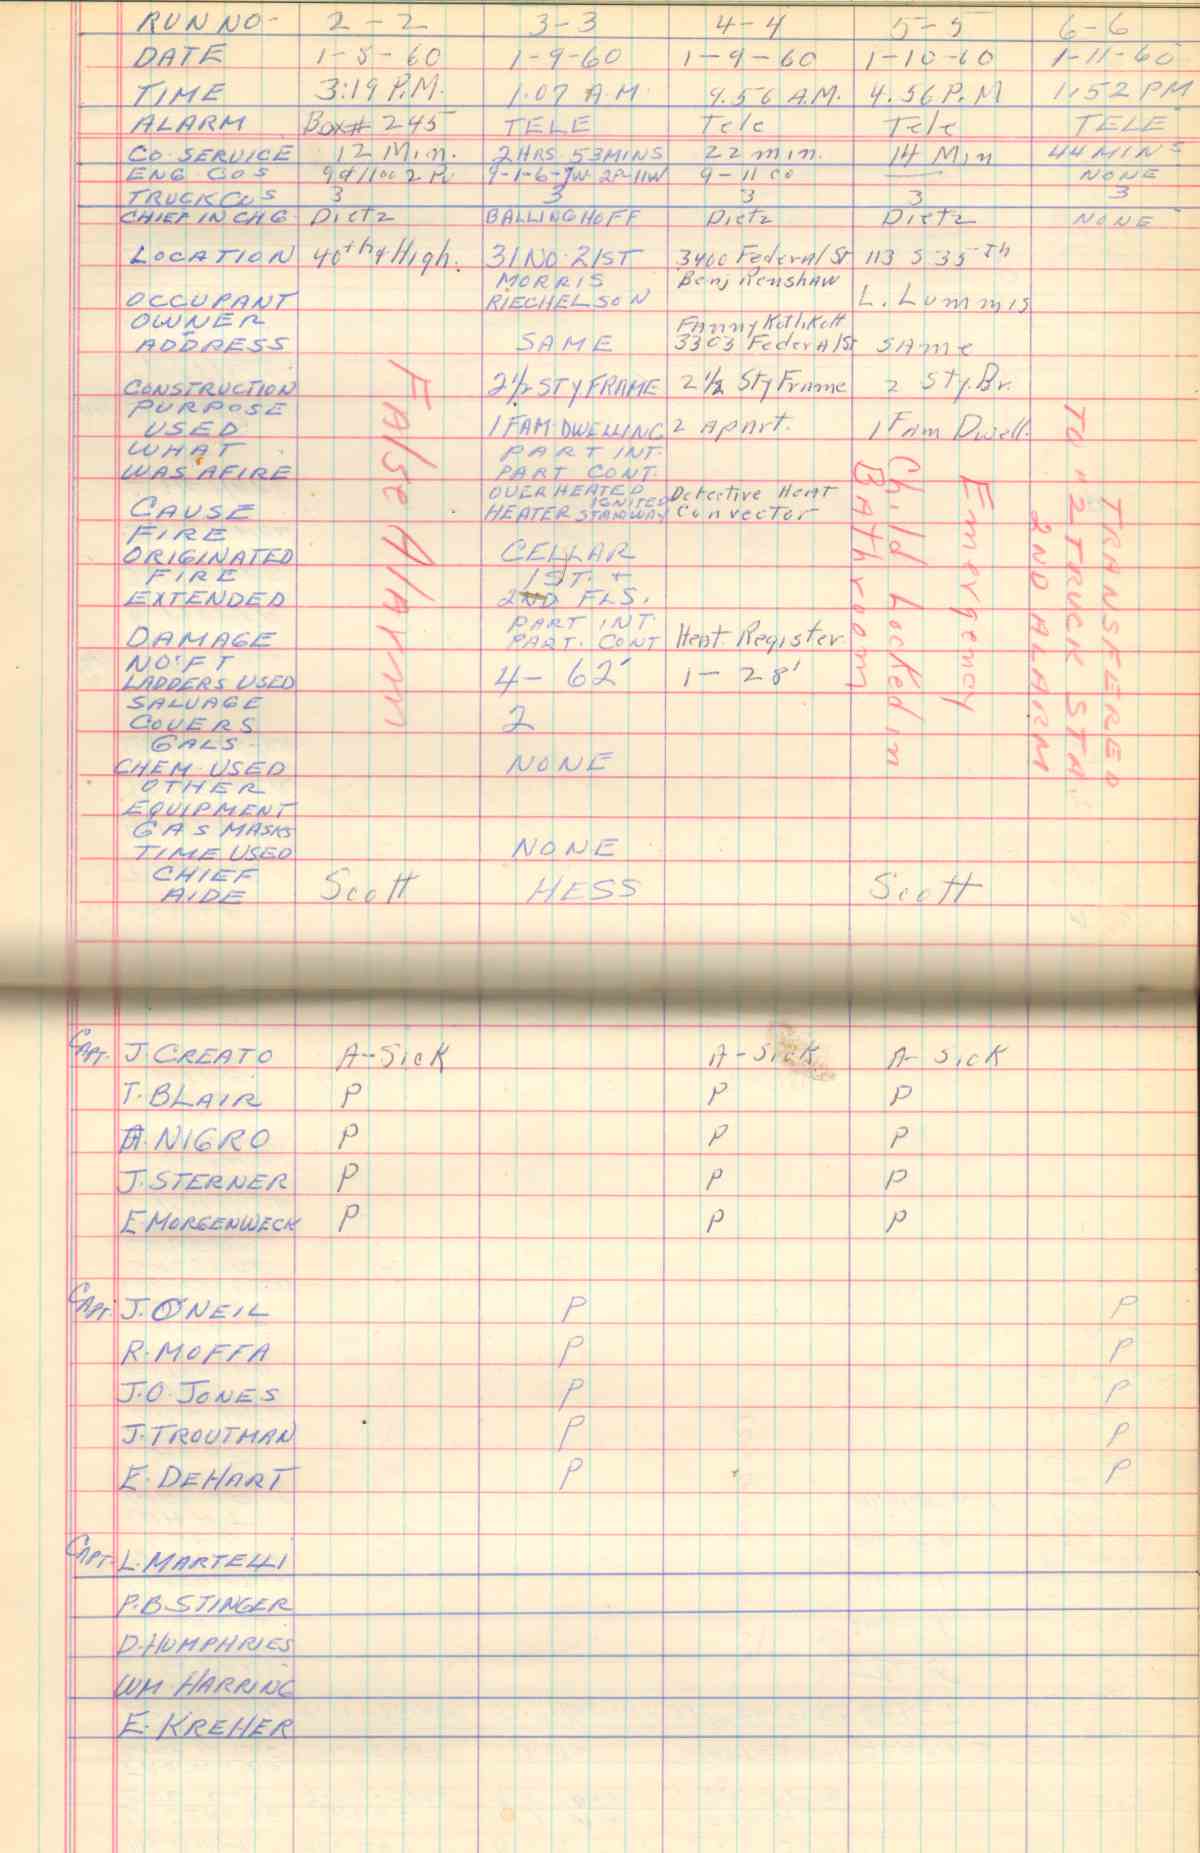 RUN NO- 2-2 3-3 4-4 5-5 6-6
DATE 1-5-60 1-9-60 1-9-60 1-10-60 1-11-60
TIME 3:19 P.M. 1:07 A.M. 9.56 A.M. 4.56 P.M 1:52 PM
ALARM Box# 245 TELE Tele Tele TELE
CO. SERVICE 12 Min. 2HRS. 53MINS 22 min. 14 Min 44 MINS
ENG. COS 9-11 co NONE
TRUCK COS 3 3 3 3 3
CHIEF IN CHG. Dietz BALLINGHOFF Dietz Dietz NONE
LOCATION 40th & High. 31 NO. 21ST 3400 Federal St 113 S 35th
MORRIS Benj Renshaw
OCCUPANT RIECHELSON L. Lummis
OWNER Fanny
ADDRESS SAME 3303 Federal St same
CONSTRUCTION 2½ STY FRAME 2½ Sty Frame 2 Sty. Br.
PURPOSE
USED 1 FAM. DWELLING 2 Apart. 1 Fam Dwell.
WHAT PART INT.
WAS AFIRE PART CONT.
OVERHEATED Defective Heat
IGNITED
CAUSE HEATER STAIRWAY Convector
FIRE
ORIGINATED CELLAR
FIRE 1ST. +
EXTENDED 2ND FLS.
PART INT.
DAMAGE PART. CONT Heat. Register
NO: FT
LADDERS USED 4- 62' 1- 28'
SALVAGE
COVERS 2
GALS.
CHEM. USED NONE
OTHER
EQUIPMENT
GAS MASKS
TIME USED NONE
CHIEF
AIDE Scott HESS Scott
False Alarm
Emergency
Child Locked in
Bathroom
TRANSFERED
TO #2 TRUCK STA.
2ND ALARM
CAPT. J. CREATO A-Sick A-Sick A- Sick
T. BLAIR P P P
A. NIGRO P P P
J. STERNER P P P
E MORGENWECK P P P
CAPT. J. O'NEIL P P
R. MOFFA P P
J. O. JONES P P
J. TROUTMAN P P
E. DEHART P P
CAPT. L. MARTELLI
P. B STINGER
D. HUMPHRIES
WM HARRING
E. KREHER